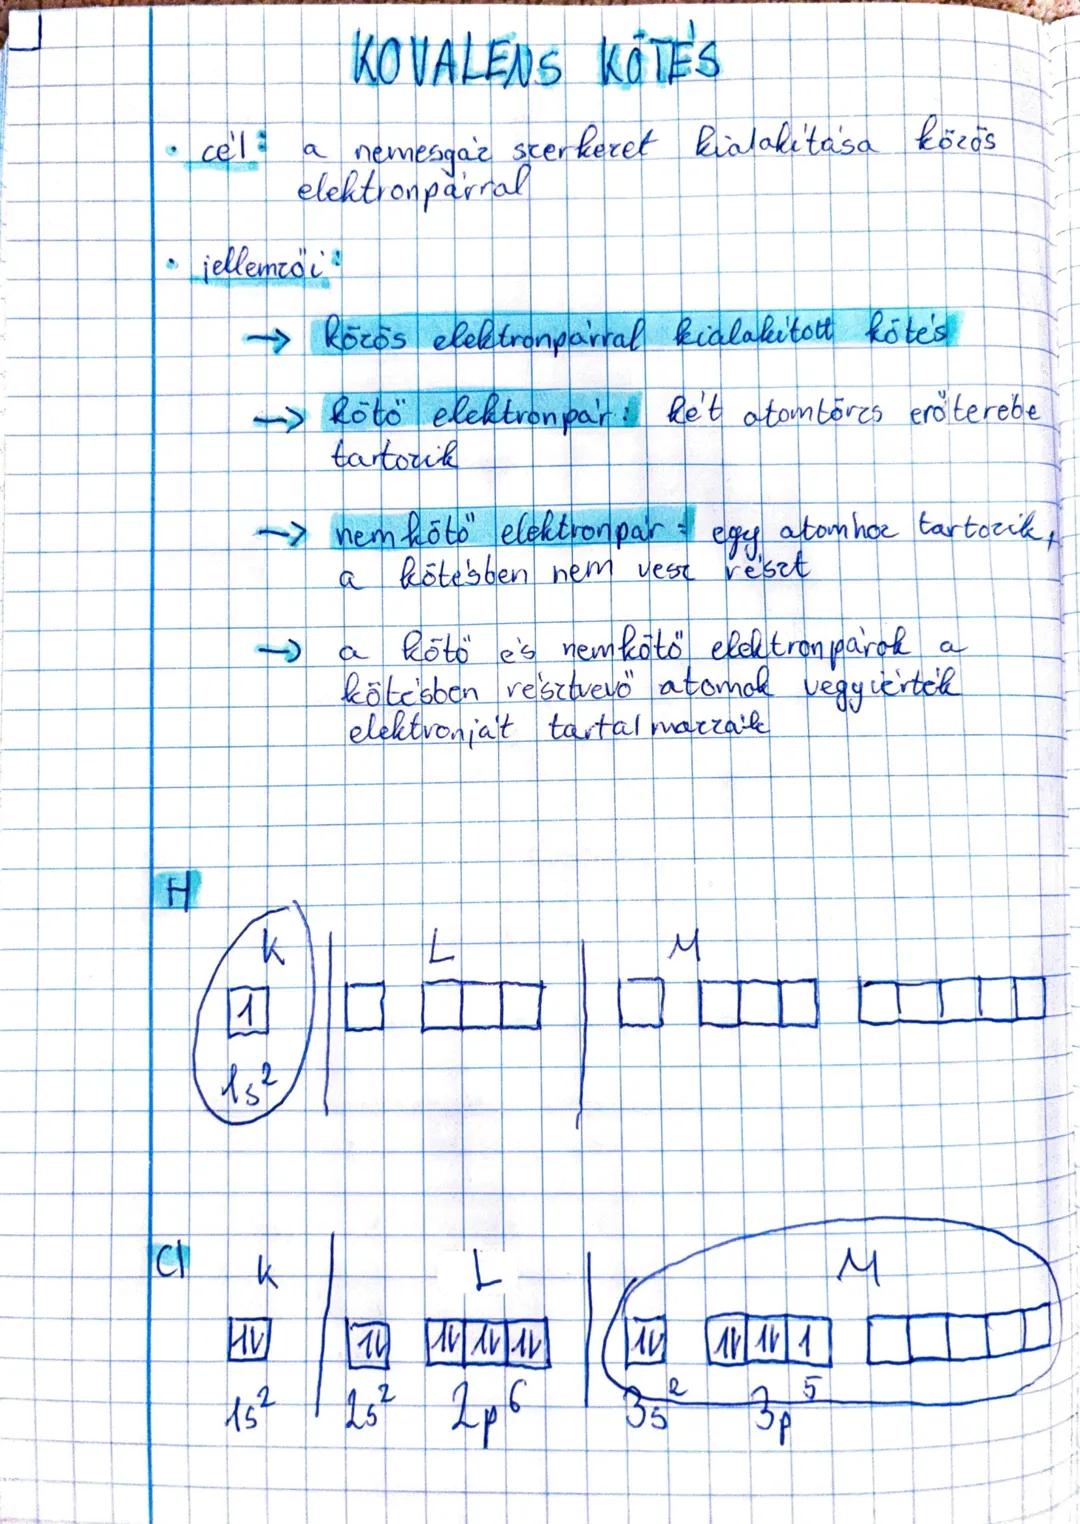 KOVALENS KÖTÉS
• cél: a nemesgáz szerkezet kialakítása közös
elektronpárral
• jellemzői:
→ közös elektronpárral kialakított kötés
→ kötő elektronpár: két atomtörzs erőterébe
tartozik
→ nemkötő elektronpár: egy atomhoz tartozik,
a kötésben nem vesz részt
→ a kötő és nemkötő elektronpárok a
kötésben résztvevő atomok vegyérték
elektronját tartalmazzák
H
K L M
1
1s²
Cl
K L M
1s² 2s² 2p⁶ 3s² 3p⁵